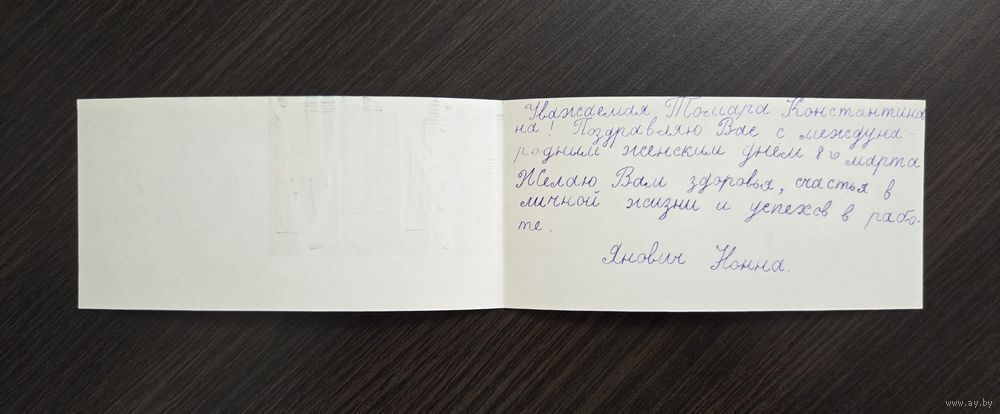 Уважаемая Томара Константина
на! Поздравляю Вас с междуна-
родним женским днём 8го марта
Желаю Вам здоровья, счастья в
личной жизни и успехов в рабо-
те.
Янович Нонна.
www.ay.by